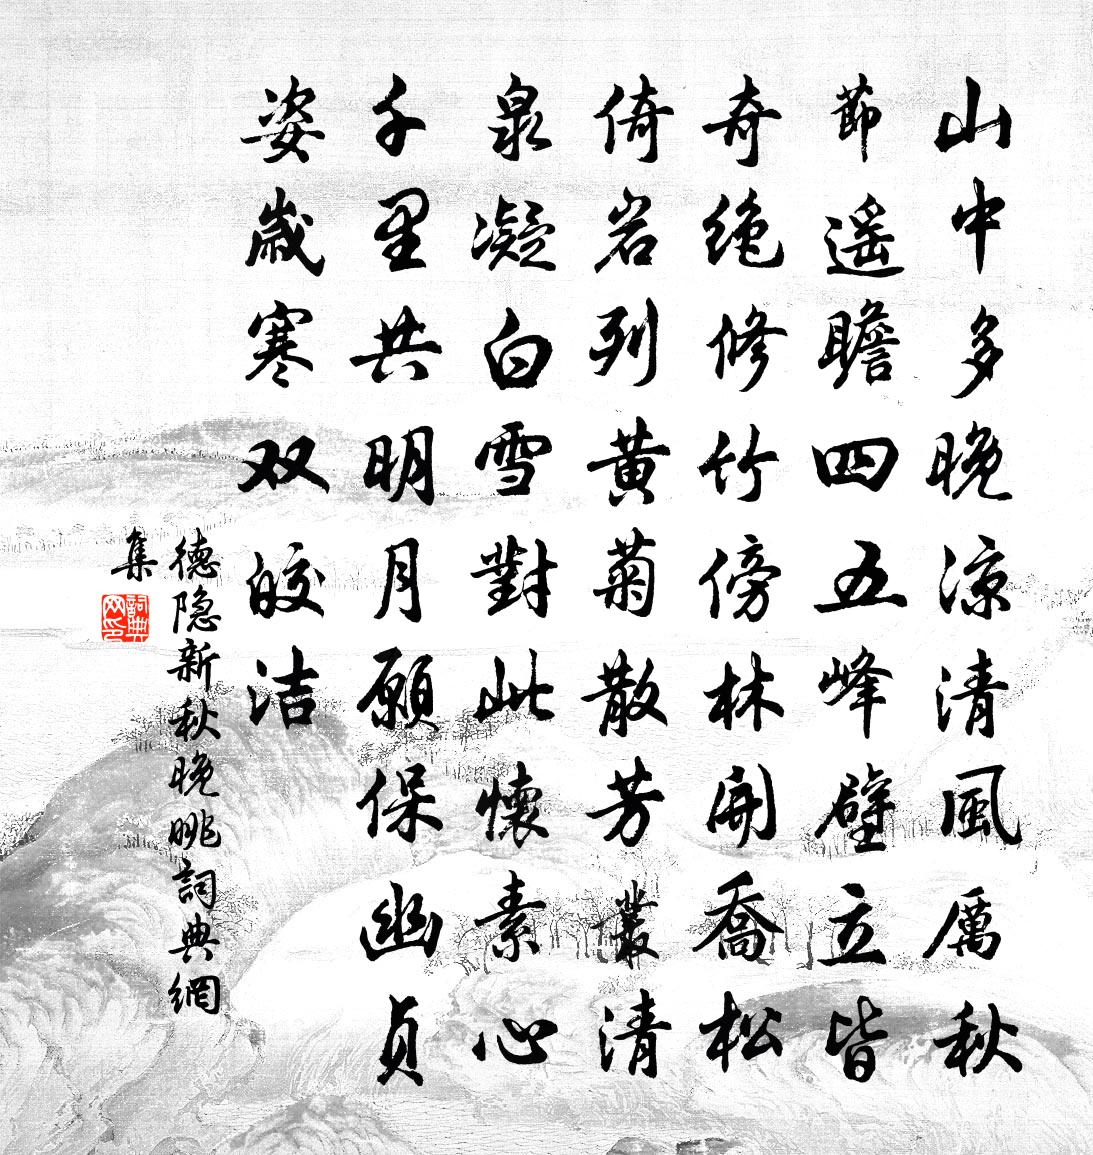 山中多晚凉清風厲秋
節遥瞻四五峰壁立皆
奇絶修竹傍林開喬松
倚岩列黄菊散芳叢清
泉凝白雪對此懷素心
千里共明月願保幽貞
姿歲寒双皎洁
德隐新秋晚眺詞典網
集
詞典
网印